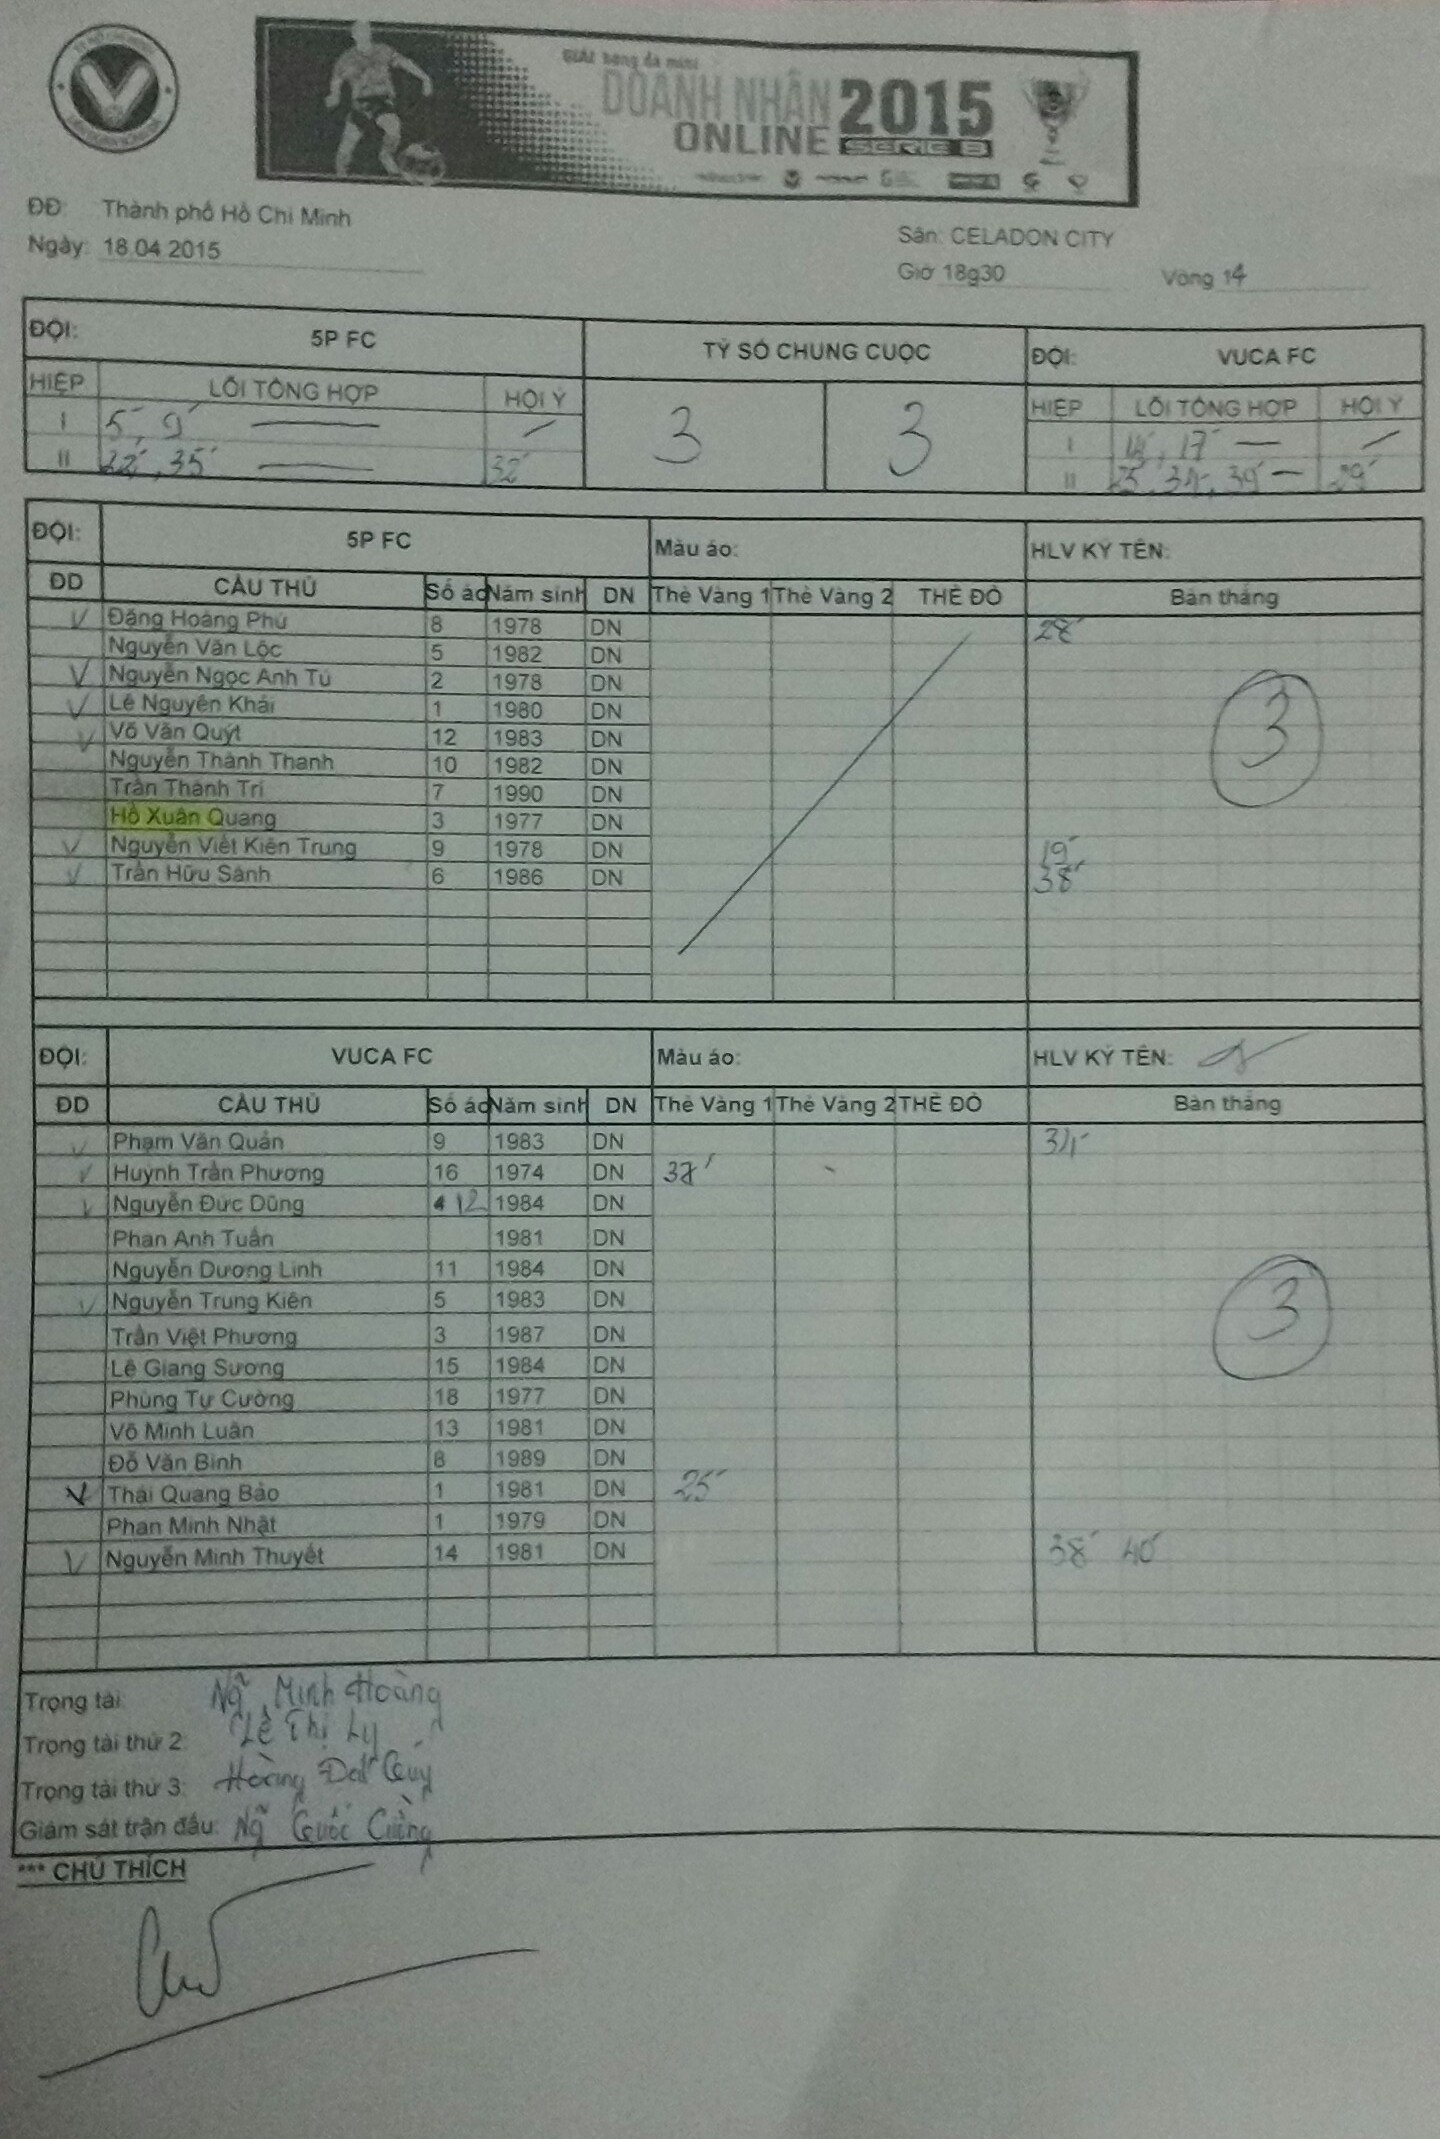 GIẢI bóng đá mini
DOANH NHÂN 2015
ONLINE SERIE B
ĐĐ: Thành phố Hồ Chí Minh
Ngày: 18.04.2015
Sân: CELADON CITY
Giờ 18g30 Vòng 14
ĐỘI: 5P FC TỶ SỐ CHUNG CUỘC ĐỘI: VUCA FC
HIỆP LỖI TỔNG HỢP HỘI Ý 3 3 HIỆP LỖI TỔNG HỢP HỘI Ý
I 5´, 9´ — — I 14´, 17´ — —
II 22´, 35´ — 32´ II 25´, 34´, 39´ — 29´
ĐỘI: 5P FC Màu áo: HLV KÝ TÊN:
ĐD CẦU THỦ Số áo Năm sinh DN Thẻ Vàng 1 Thẻ Vàng 2 THẺ ĐỎ Bàn thắng
V Đặng Hoàng Phú 8 1978 DN 28´
Nguyễn Văn Lộc 5 1982 DN
V Nguyễn Ngọc Anh Tú 2 1978 DN
V Lê Nguyên Khải 1 1980 DN
V Võ Văn Quýt 12 1983 DN 3
Nguyễn Thành Thanh 10 1982 DN
Trần Thành Trí 7 1990 DN
Hồ Xuân Quang 3 1977 DN
V Nguyễn Viết Kiên Trung 9 1978 DN 19´
V Trần Hữu Sánh 6 1986 DN 38´
ĐỘI: VUCA FC Màu áo: HLV KÝ TÊN:
ĐD CẦU THỦ Số áo Năm sinh DN Thẻ Vàng 1 Thẻ Vàng 2 THẺ ĐỎ Bàn thắng
V Phạm Văn Quản 9 1983 DN 34´
V Huỳnh Trần Phương 16 1974 DN 38´
V Nguyễn Đức Dũng 12 1984 DN
Phan Anh Tuấn 1981 DN
Nguyễn Dương Linh 11 1984 DN
V Nguyễn Trung Kiên 5 1983 DN 3
Trần Việt Phương 3 1987 DN
Lê Giang Sương 15 1984 DN
Phùng Tự Cường 18 1977 DN
Võ Minh Luân 13 1981 DN
Đỗ Văn Bình 8 1989 DN
V Thái Quang Bảo 1 1981 DN 25´
Phan Minh Nhật 1 1979 DN
V Nguyễn Minh Thuyết 14 1981 DN 38´ 40´
Trọng tài: Ng̃ Minh Hoàng
Trọng tài thứ 2: Lê Thị Ly
Trọng tài thứ 3: Hoàng Đạt Quý
Giám sát trận đấu: Ng̃ Quốc Cường
*** CHÚ THÍCH